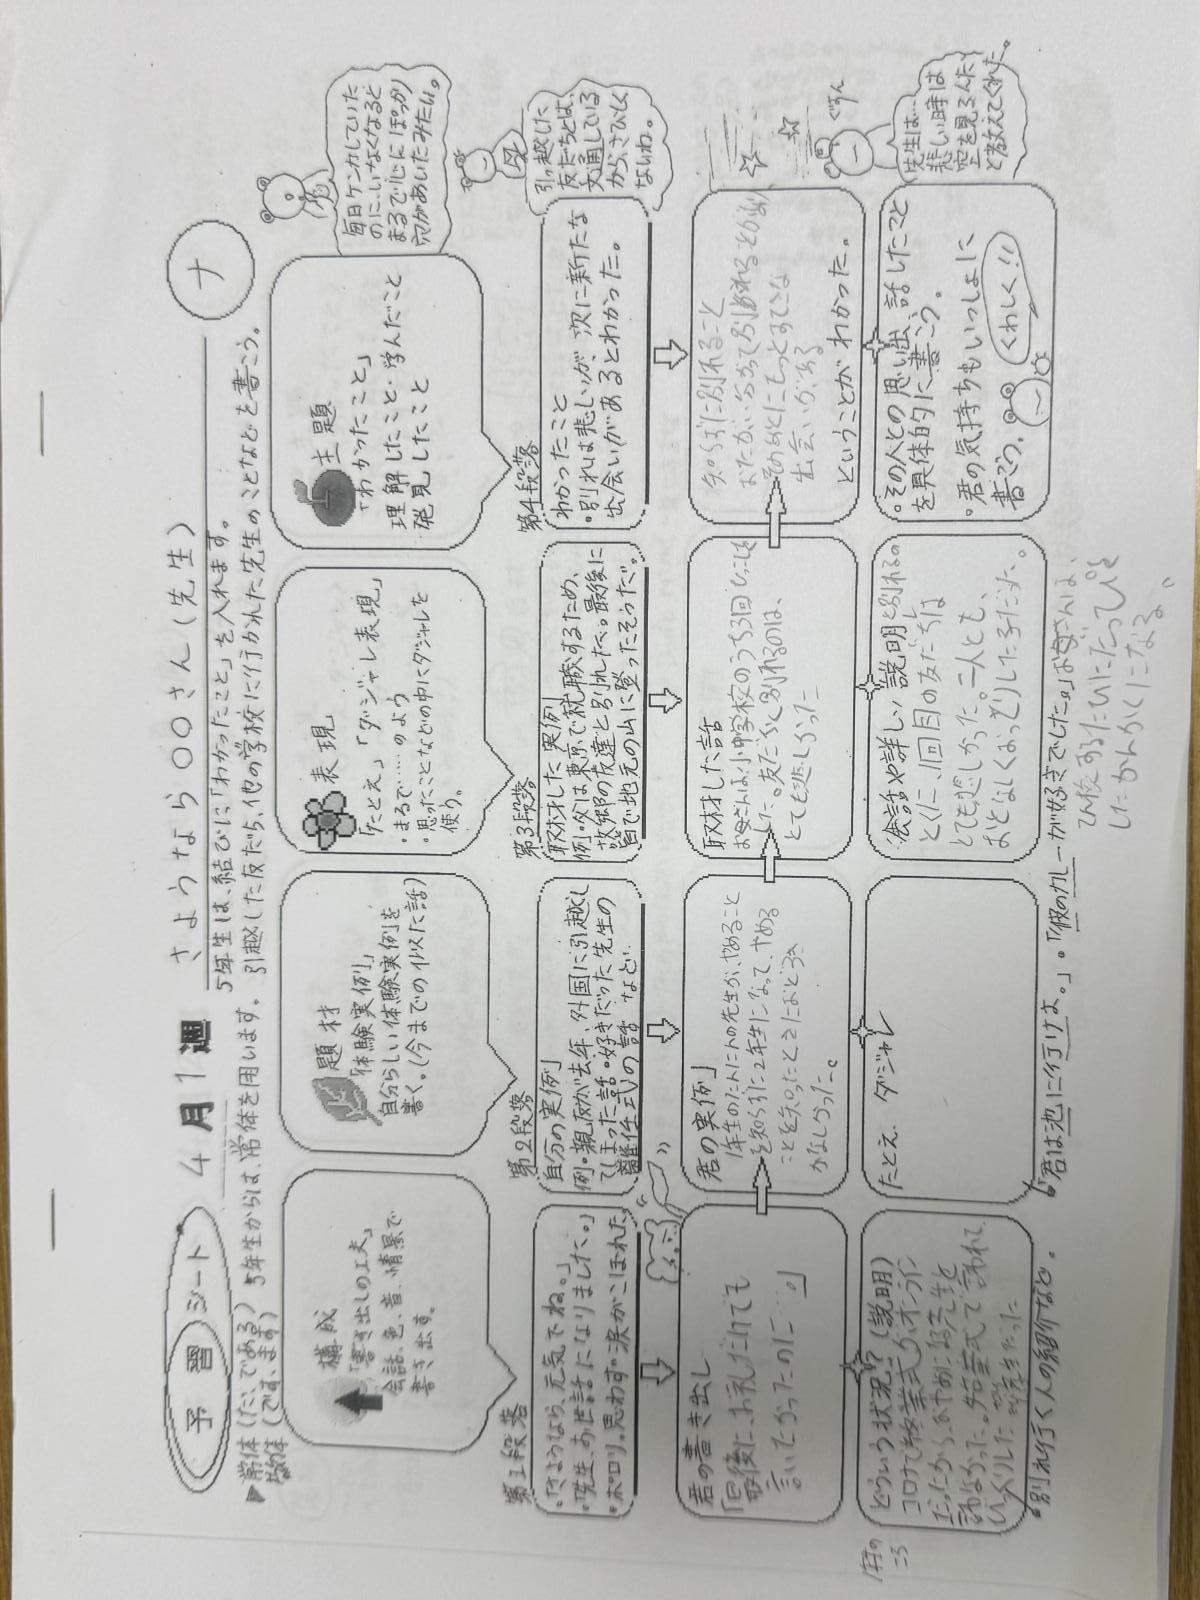 予習シート
4月1週
さようなら〇〇さん(先生)
ナ
▶常体(だ、である)
敬体(です、ます)
5年生からは、常体を用います。
5年生は、結びに「わかったこと」を入れます。
引越しした友だち、他の学校に行かれた先生のことなどを書こう。
構成
「書き出しの工夫」
会話、色、音、情景で
書き出す。
題材
「体験実例」
自分らしい体験実例を
書く。(今までの似た話)
表現
「たとえ」「ダジャレ表現」
・まるで……のよう
・思ったことなどの中にダジャレを
使う。
主題
「わかったこと」
理解したこと・学んだこと
発見したこと
毎日ケンカしていた
のに、いなくなると
まるで心にぽっかり
穴があいたみたい。
第1段落
・「さようなら、元気でね。」
・「先生、お世話になりました。」
・ポロリ。思わず涙がこぼれた
第2段落
自分の実例」
例・親友が去年、外国に引越し
てしまった話・好きだった先生の
離任式の話 など
第3段落
取材した実例
例・父は東京で就職するため、
故郷の友達と別れた。最後に
皆で地元の山に登ったそうだ。
第4段落
わかったこと
・別れは悲しいが、次に新たな
出会いがあるとわかった。
引っ越した
友だちとは、
文通している
から、さびしく
ないわ。
君の書き出し
「最後に、お礼だけでも
言いたかったのに…。」
君の実例」
1年生のたんにんの先生が、やめること
を知らずに2年生になって、やめる
ことを知ったときにおどろき
かなしかった。
取材した話
お母さんは、小中学校のうち3回ひっこし
した。友だちと別れるのは、
とても悲しかった
知らずに別れること
おたがい分かって別れるとがあり
そのあとにもっとすてきな
出会いがある
ということがわかった。
ぐすん
先生は…
悲しい時は
空を見るんだ
と教えてくれた。
1年の
ころ
どういう状況？(説明)
コロナで終業式がオンライン
だったから、おやめになる先生を
知らなかった。始業式で言われて
びっくりした
・別れ行く人の紹介など。
たとえ、ダジャレ
・「君は池に行けよ。」・「彼のカレーが好きでした。」
会話や詳しい説明
とくに、1回目の友だちは
とても悲しかった。二人とも、
おとなしくおっとりした子だった。
・その人との思い出、話したこと
を具体的に書こう。
・君の気持ちもいっしょに
書こう。
くわしく!!